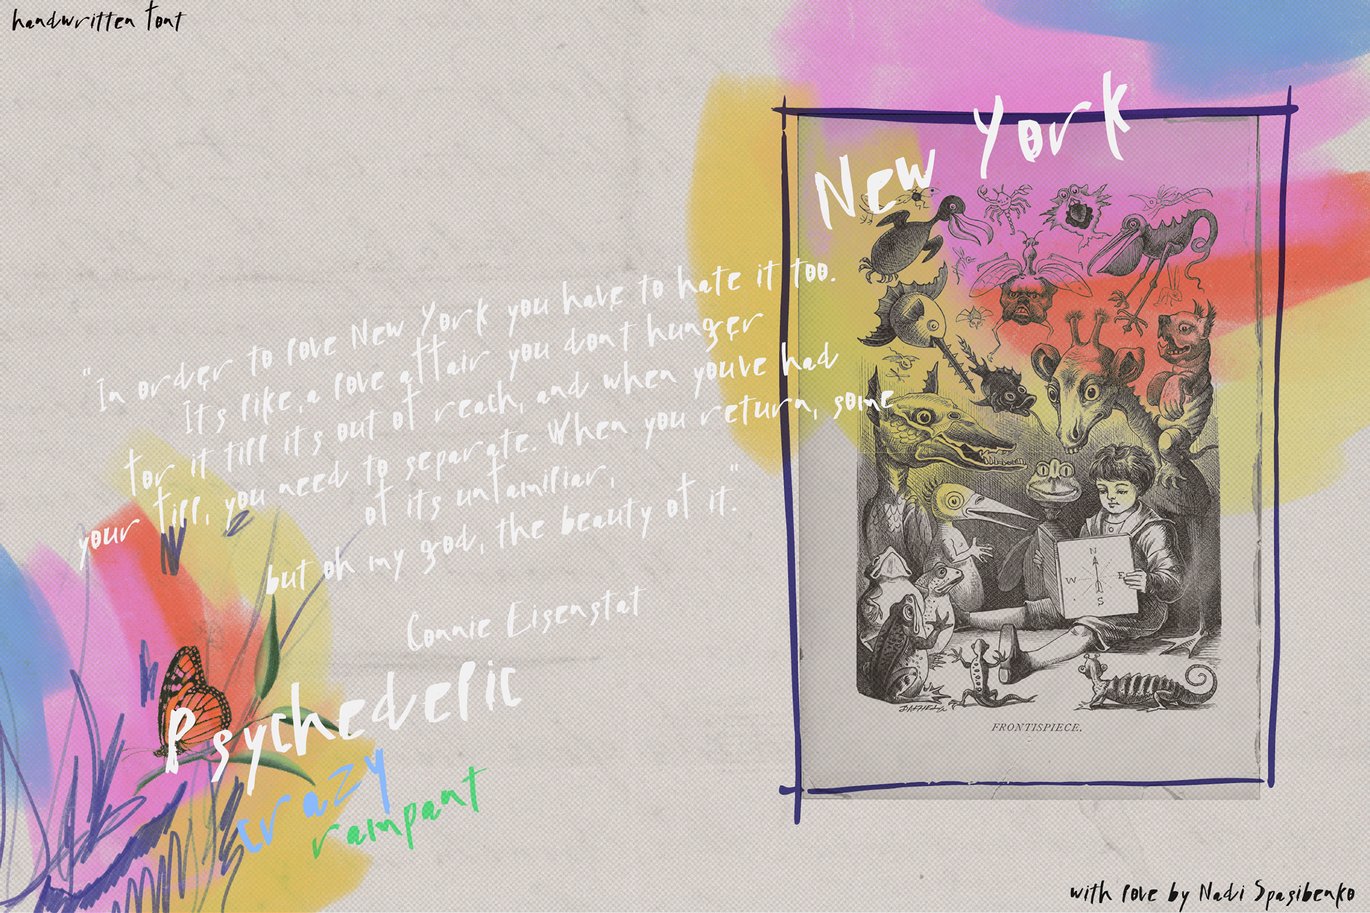 handwritten font
New York
"In order to love New York you have to hate it too.
It's like, a love affair you dont hunger
for it till it's out of reach, and when youve had
your fill, you need to separate. When you return, some
of it's unfamiliar,
but oh my god, the beauty of it."
Connie Eisenstat
Psychedelic
crazy
rampant
N
W E
S
FRONTISPIECE.
with love by Nadi Spasibenko